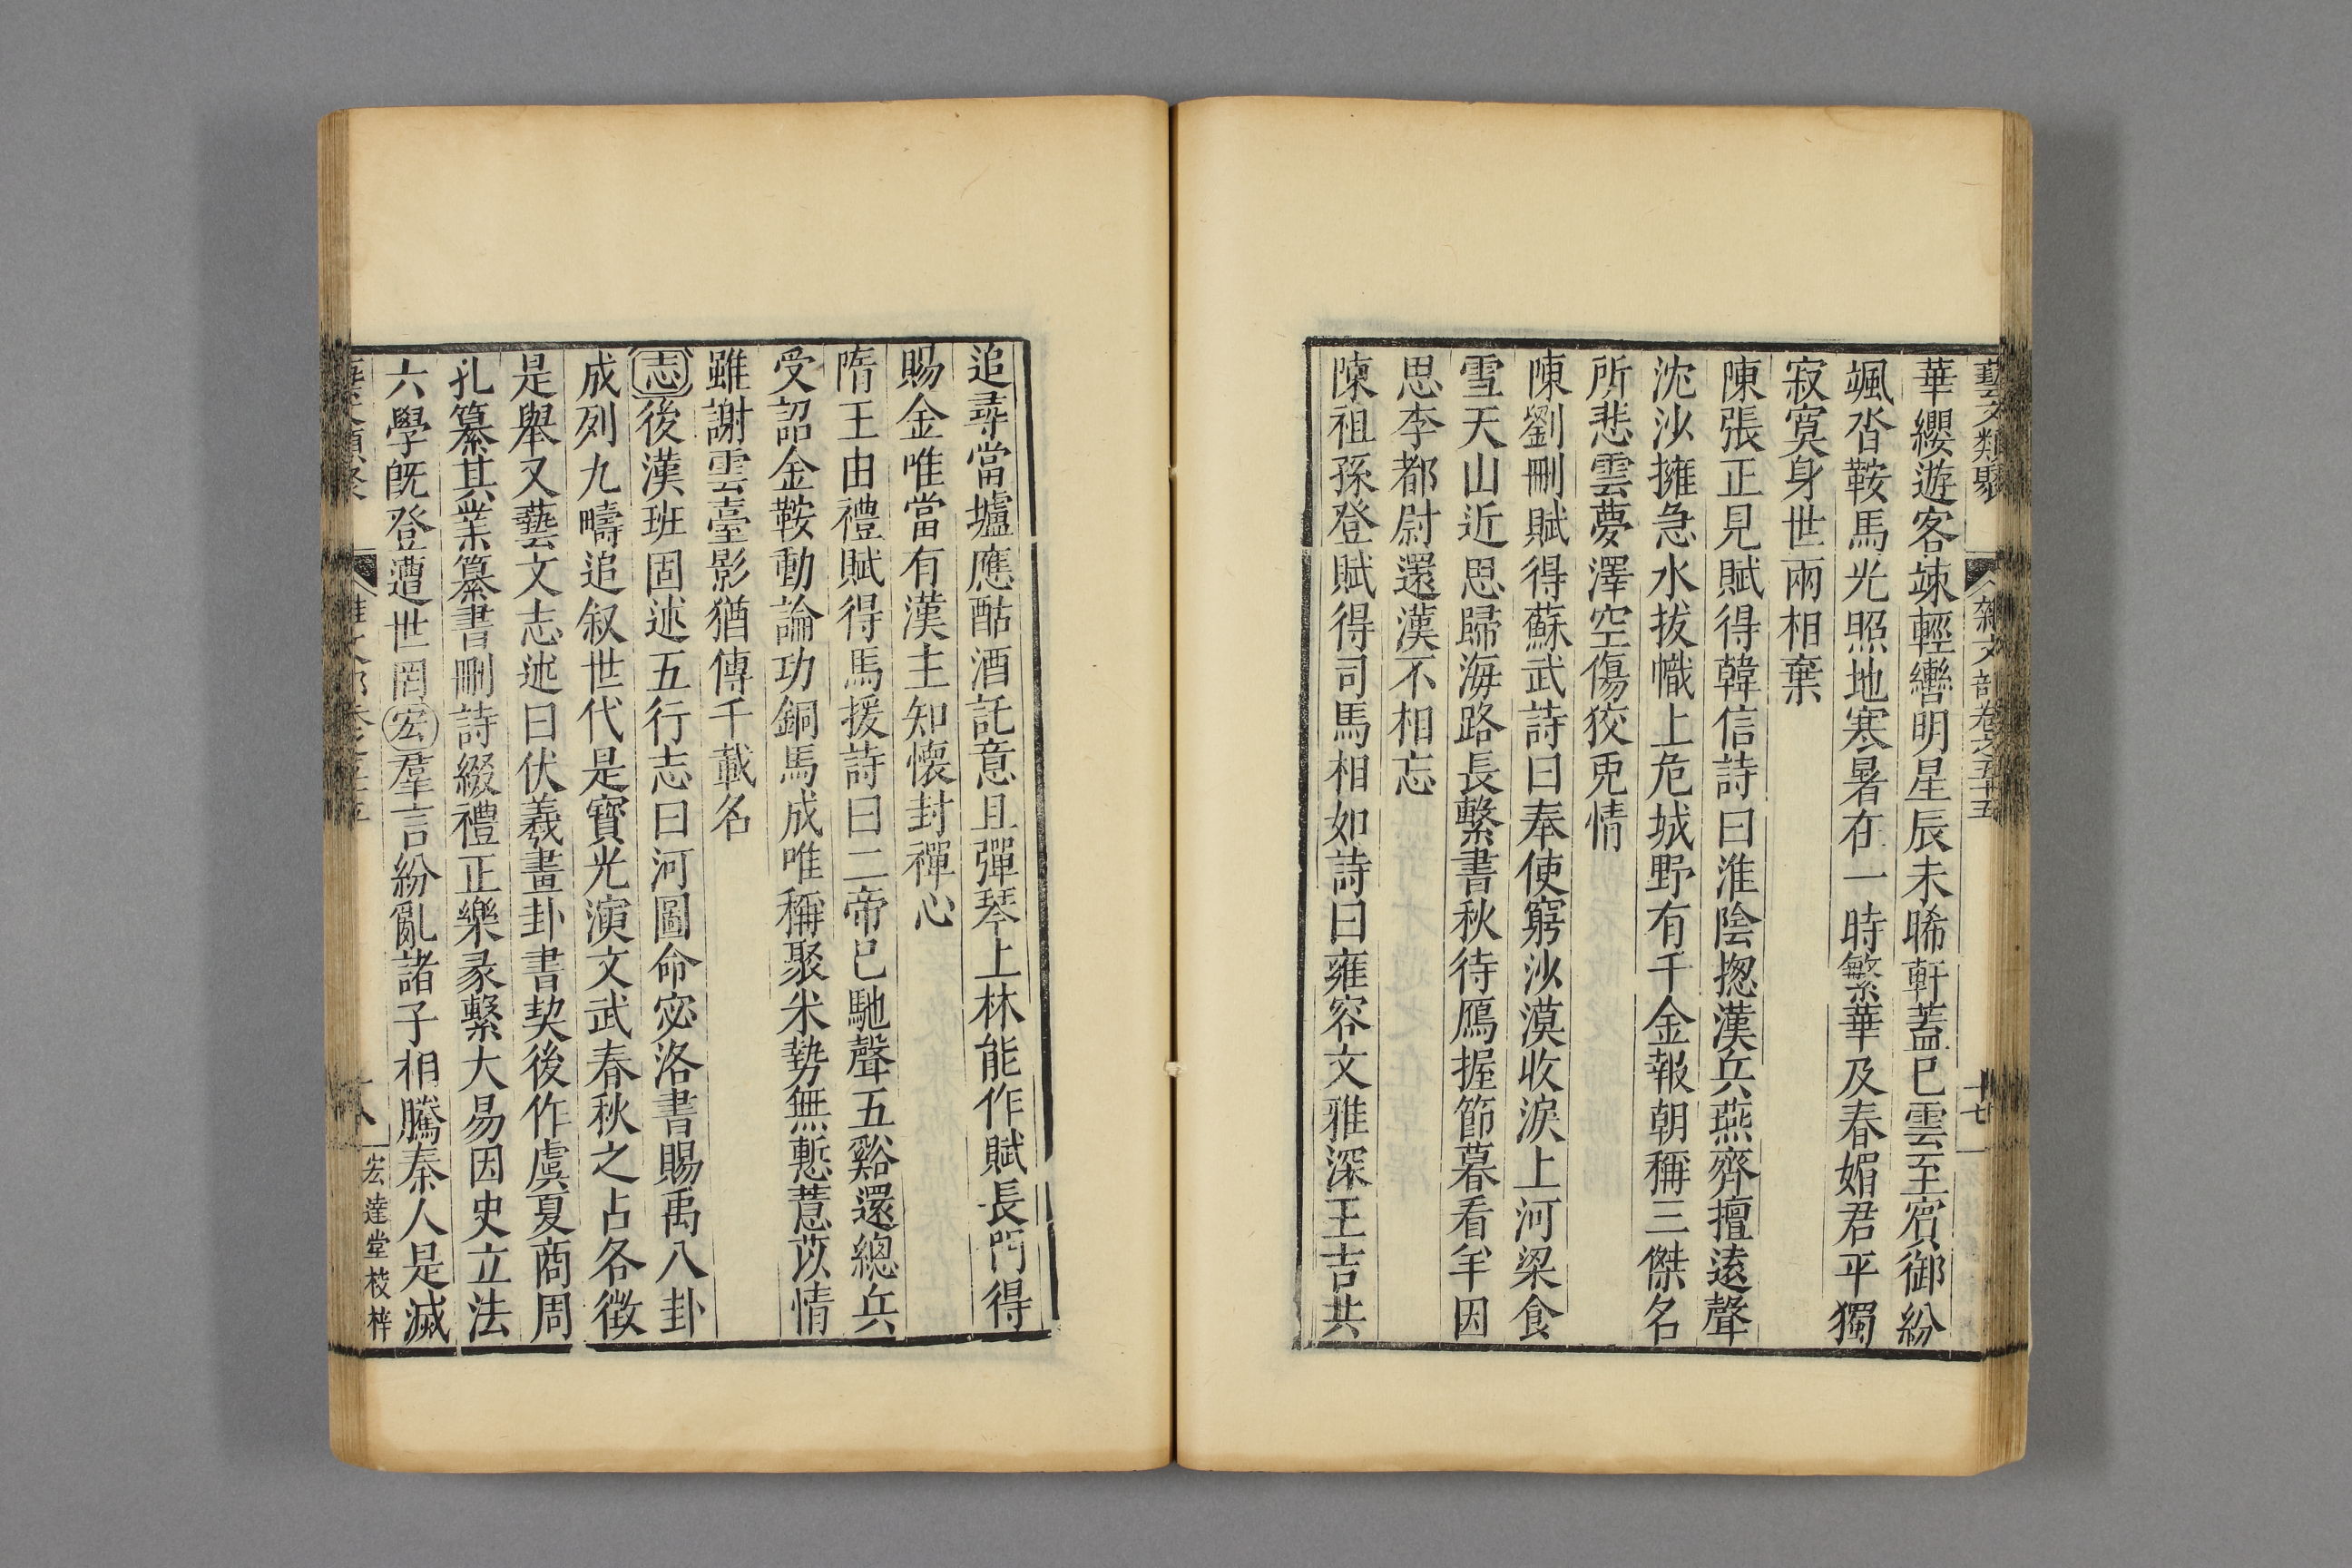 藝文類聚 雜文部卷之五十五 十七
華纓遊客竦輕轡明星辰未晞軒蓋已雲至賓御紛
颯沓鞍馬光照地寒暑在一時繁華及春媚君平獨
寂寞身世兩相棄
陳張正見賦得韓信詩曰淮陰揔漢兵燕齊擅遠聲
沈沙擁急水拔幟上危城野有千金報朝稱三傑名
所悲雲夢澤空傷狡兎情
陳劉刪賦得蘇武詩曰奉使窮沙漠收淚上河梁食
雪天山近思歸海路長繫書秋待鴈握節暮看羊因
思李都尉還漢不相忘
陳祖孫登賦得司馬相如詩曰雍容文雅深王吉共
追尋當壚應酤酒託意且彈琴上林能作賦長門得
賜金唯當有漢主知懷封禪心
隋王由禮賦得馬援詩曰二帝已馳聲五谿還總兵
受詔金鞍動論功銅馬成唯稱聚米勢無慙薏苡情
雖謝雲臺影猶傳千載名
志後漢班固述五行志曰河圖命宓洛書賜禹八卦
成列九疇追叙世代是寶光演文武春秋之占各徵
是舉又藝文志述曰伏羲畫卦書契後作虞夏商周
孔纂其業纂書刪詩綴禮正樂彖繫大易因史立法
六學旣登遭世罔宏羣言紛亂諸子相騰秦人是滅
宏達堂校梓